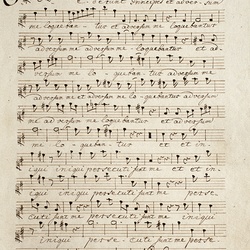 E- derunt Principes et adver- sum
me loquebantur et adversum me loquebantur
adversum me adversum me loquebantur et ad-
versum me lo- queban- tur adversum
adversum me adversum me loquebantur adversum
me lo- queban- tur et et in-
iqui iniqui persecuti sunt me perse-
cuti sunt me persecuti sunt me iniqui
iniqui perse- cuti sunt me